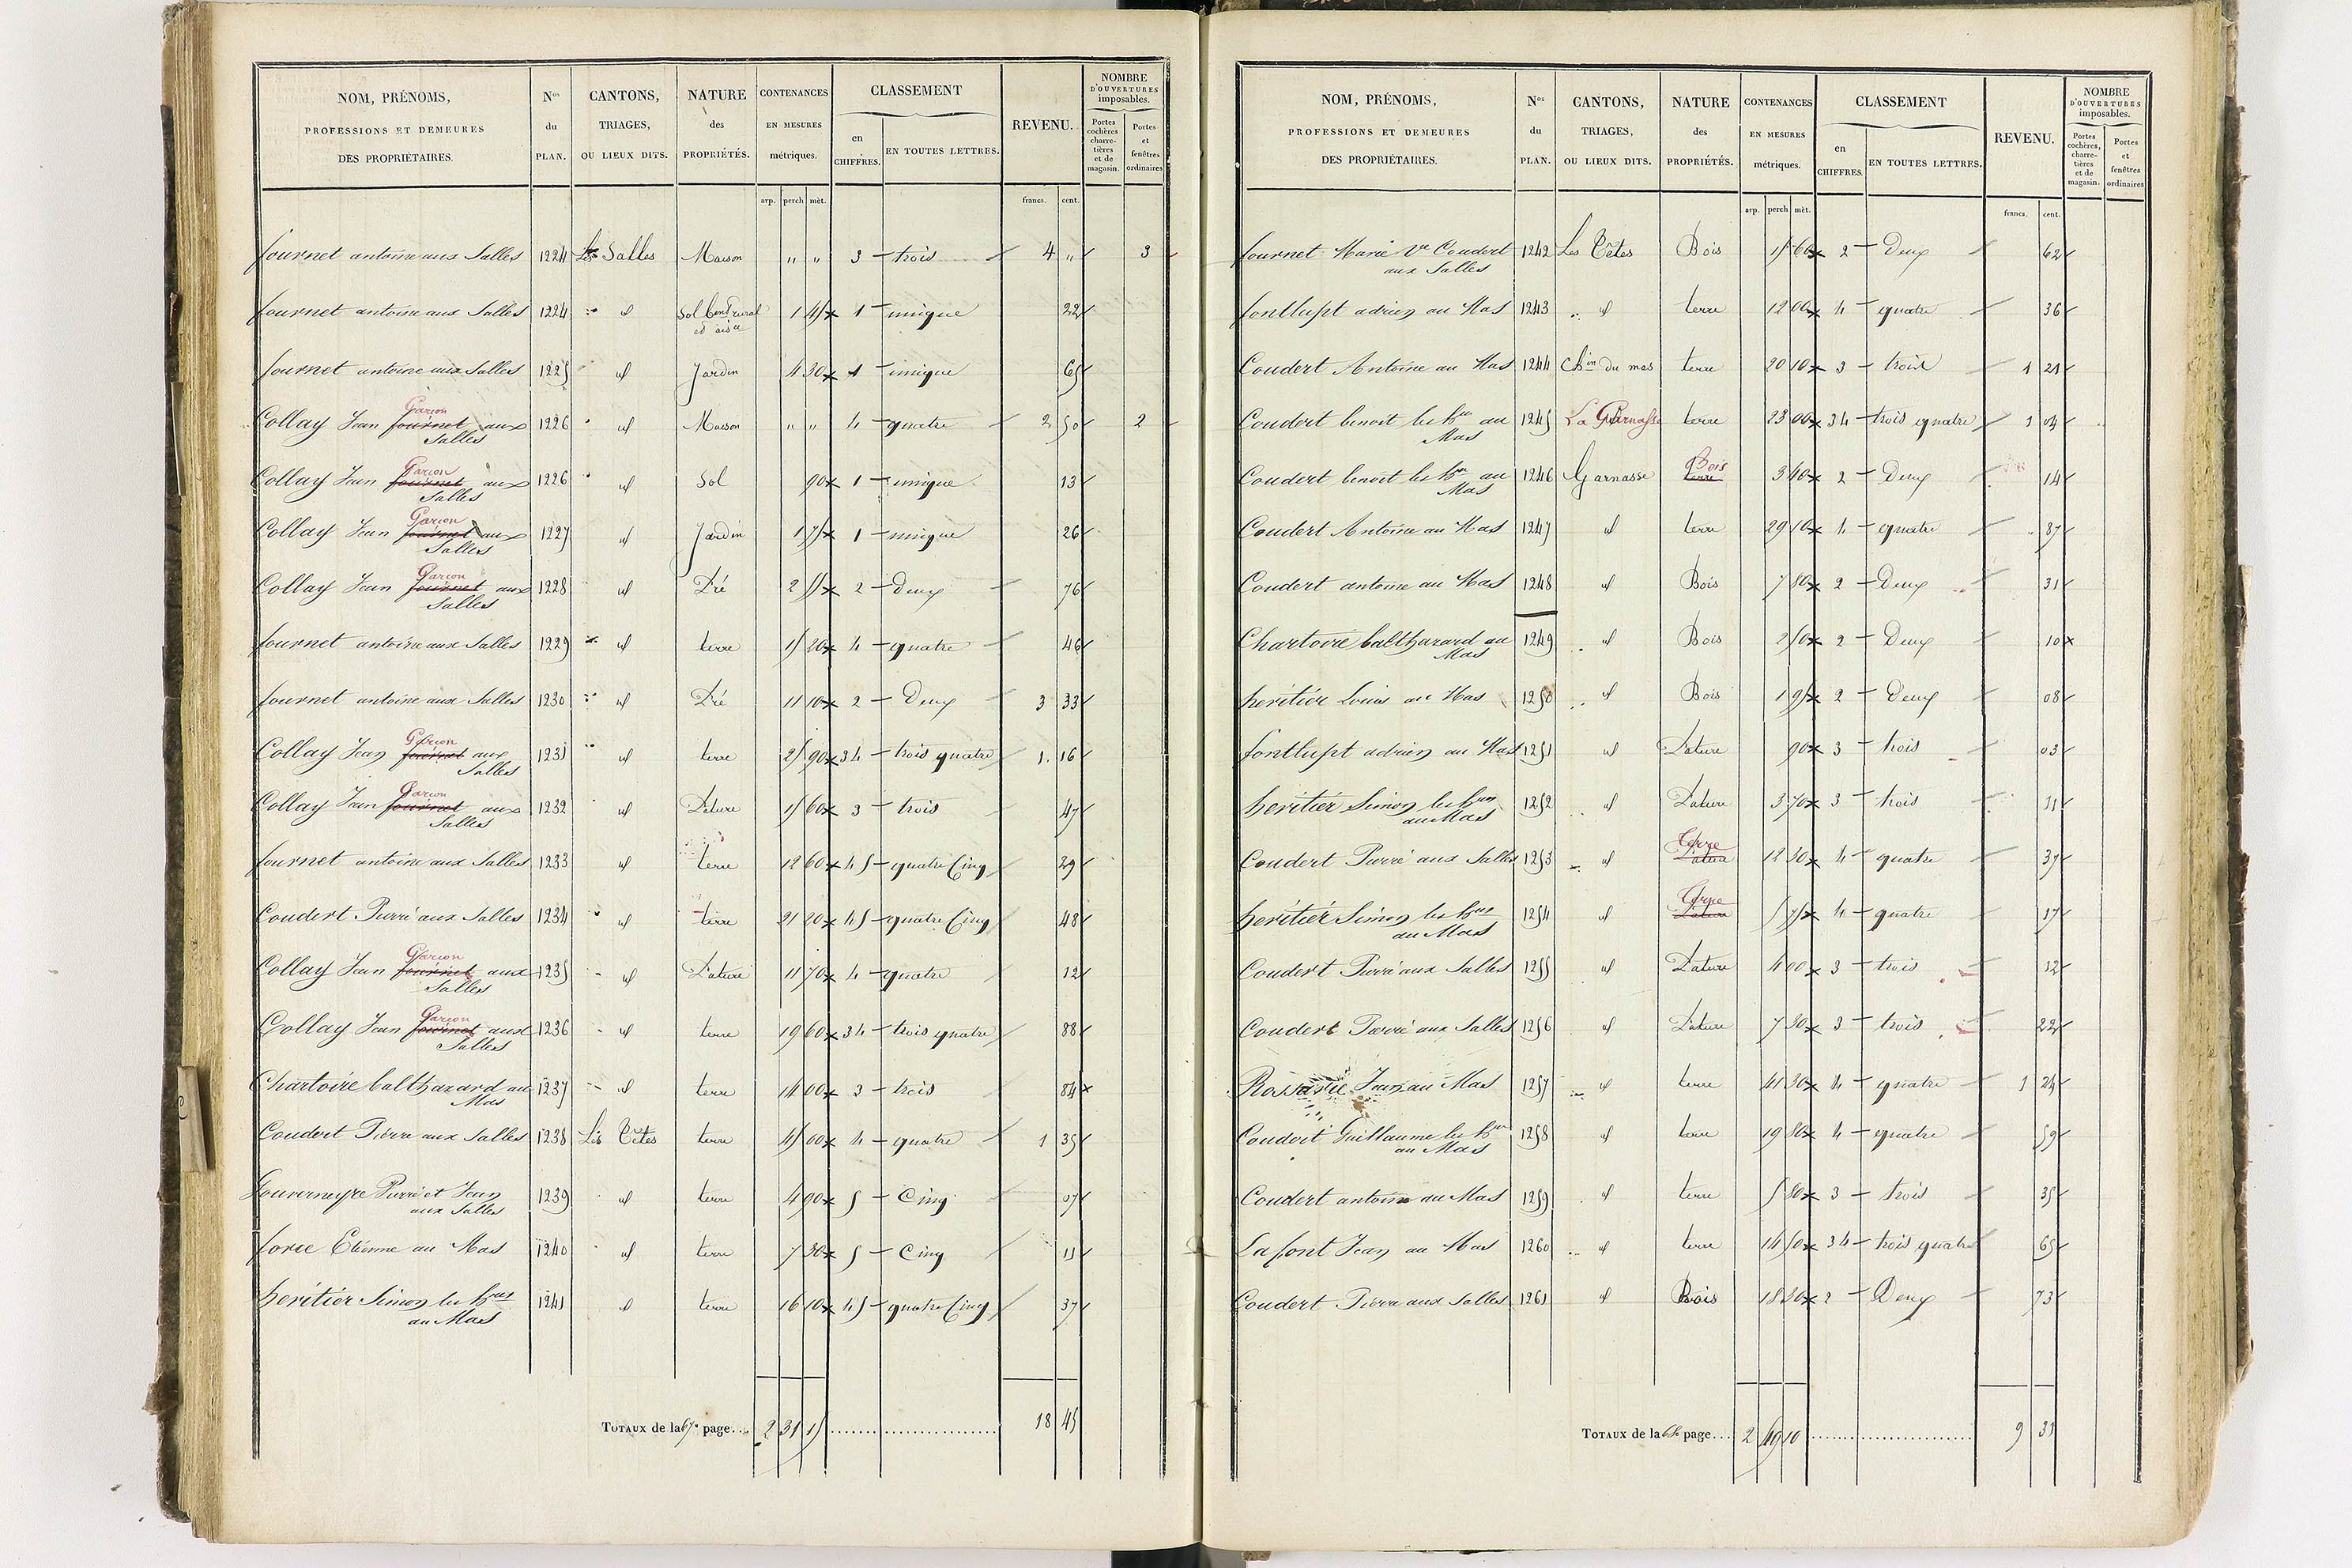 NOM, PRÉNOMS, PROFESSIONS ET DEMEURES DES PROPRIÉTAIRES. Nos du PLAN. CANTONS, TRIAGES, OU LIEUX DITS. NATURE des PROPRIÉTÉS. CONTENANCES EN MESURES métriques. CLASSEMENT en CHIFFRES. EN TOUTES LETTRES. REVENU. NOMBRE D'OUVERTURES imposables. Portes cochères charretières et de magasin. Portes et fenêtres ordinaires
arp. perch mèt. francs. cent.
fournet antoine aux Salles 1224 Les Salles Maison " " 3 trois 4 " 3
fournet antoine aux Salles 1224 id Sol bmt rural et aisce 1 45 1 unique 22
fournet antoine aux Salles 1225 id Jardin 4 30 1 unique 65
Garcon
Collay Jean fournet aux Salles 1226 id Maison " " 4 quatre 2 50 2
Garcon
Collay Jean fournet aux Salles 1226 id Sol 90 1 unique 13
Garcon
Collay Jean fournet aux Salles 1227 id Jardin 1 75 1 unique 26
Garcon
Collay Jean fournet aux Salles 1228 id Pré 2 55 2 Deux 76
fournet antoine aux Salles 1229 id terre 15 20 4 quatre 46
fournet antoine aux Salles 1230 id Pré 11 10 2 Deux 3 33
Garcon
Collay Jean fournet aux Salles 1231 id terre 25 90 34 trois quatre 1 16
Garcon
Collay Jean fournet aux Salles 1232 id Pature 15 60 3 trois 47
fournet antoine aux Salles 1233 id terre 12 60 45 quatre Cinq 29
Coudert Pierre aux Salles 1234 id terre 21 20 45 quatre Cinq 48
Garcon
Collay Jean fournet aux Salles 1235 id Pature 11 70 4 quatre 12
Garcon
Collay Jean fournet aux Salles 1236 id terre 19 60 34 trois quatre 88
Chartoire balthazard au Mas 1237 id terre 14 00 3 trois 84
Coudert Pierre aux Salles 1238 Les Têtes terre 45 00 4 quatre 1 35
Gouverneyre Pierre et Jean aux Salles 1239 id terre 4 90 5 Cinq 07
force Etienne au Mas 1240 id terre 7 30 5 Cinq 11
heritier Simon les hers au Mas 1241 id terre 16 10 45 quatre Cinq 37
TOTAUX de la 67e page.... 2 31 15 18 45
NOM, PRÉNOMS, PROFESSIONS ET DEMEURES DES PROPRIÉTAIRES. Nos du PLAN. CANTONS, TRIAGES, OU LIEUX DITS. NATURE des PROPRIÉTÉS. CONTENANCES EN MESURES métriques. CLASSEMENT en CHIFFRES. EN TOUTES LETTRES. REVENU. NOMBRE D'OUVERTURES imposables. Portes cochères, charretières et de magasin. Portes et fenêtres ordinaires
arp. perch mèt. francs. cent.
fournet Marie Ve Coudert aux Salles 1242 Les Têtes Bois 15 60 2 Deux 62
fontlupt adrien au Mas 1243 id terre 12 00 4 quatre 36
Coudert Antoine au Mas 1244 Chin du mas terre 20 10 3 trois 1 21
Coudert benoit les hers au Mas 1245 La Garnasse terre 23 00 34 trois quatre 1 04
Bois
Coudert benoit les hers au Mas 1246 Garnasse terre 3 40 2 Deux 14
Coudert Antoine au Mas 1247 id terre 29 10 4 quatre 87
Coudert antoine au Mas 1248 id Bois 7 80 2 Deux 31
Chartoire balthazard au Mas 1249 id Bois 2 50 2 Deux 10
heritier Louis au Mas 1250 id Bois 1 95 2 Deux 08
fontlupt adrien au Mas 1251 id Pature 90 3 trois 03
heritier Simon les hers au Mas 1252 id Pature 3 70 3 trois 11
Terre
Coudert Pierre aux Salles 1253 id Pature 12 30 4 quatre 37
Terre
heritier Simon les hers au Mas 1254 id Pature 5 75 4 quatre 17
Coudert Pierre aux Salles 1255 id Pature 4 00 3 trois 12
Coudert Pierre aux Salles 1256 id Pature 7 30 3 trois 22
Jean au Mas 1257 id terre 41 30 4 quatre 1 24
Coudert Guillaume les hers au Mas 1258 id terre 19 80 4 quatre 59
Coudert antoine au Mas 1259 id terre 5 80 3 trois 35
Lafont Jean au Mas 1260 id terre 14 50 34 trois quatre 65
Coudert Pierre aux Salles 1261 id Bois 18 30 2 Deux 73
TOTAUX de la 68e page.... 2 49 10 9 31